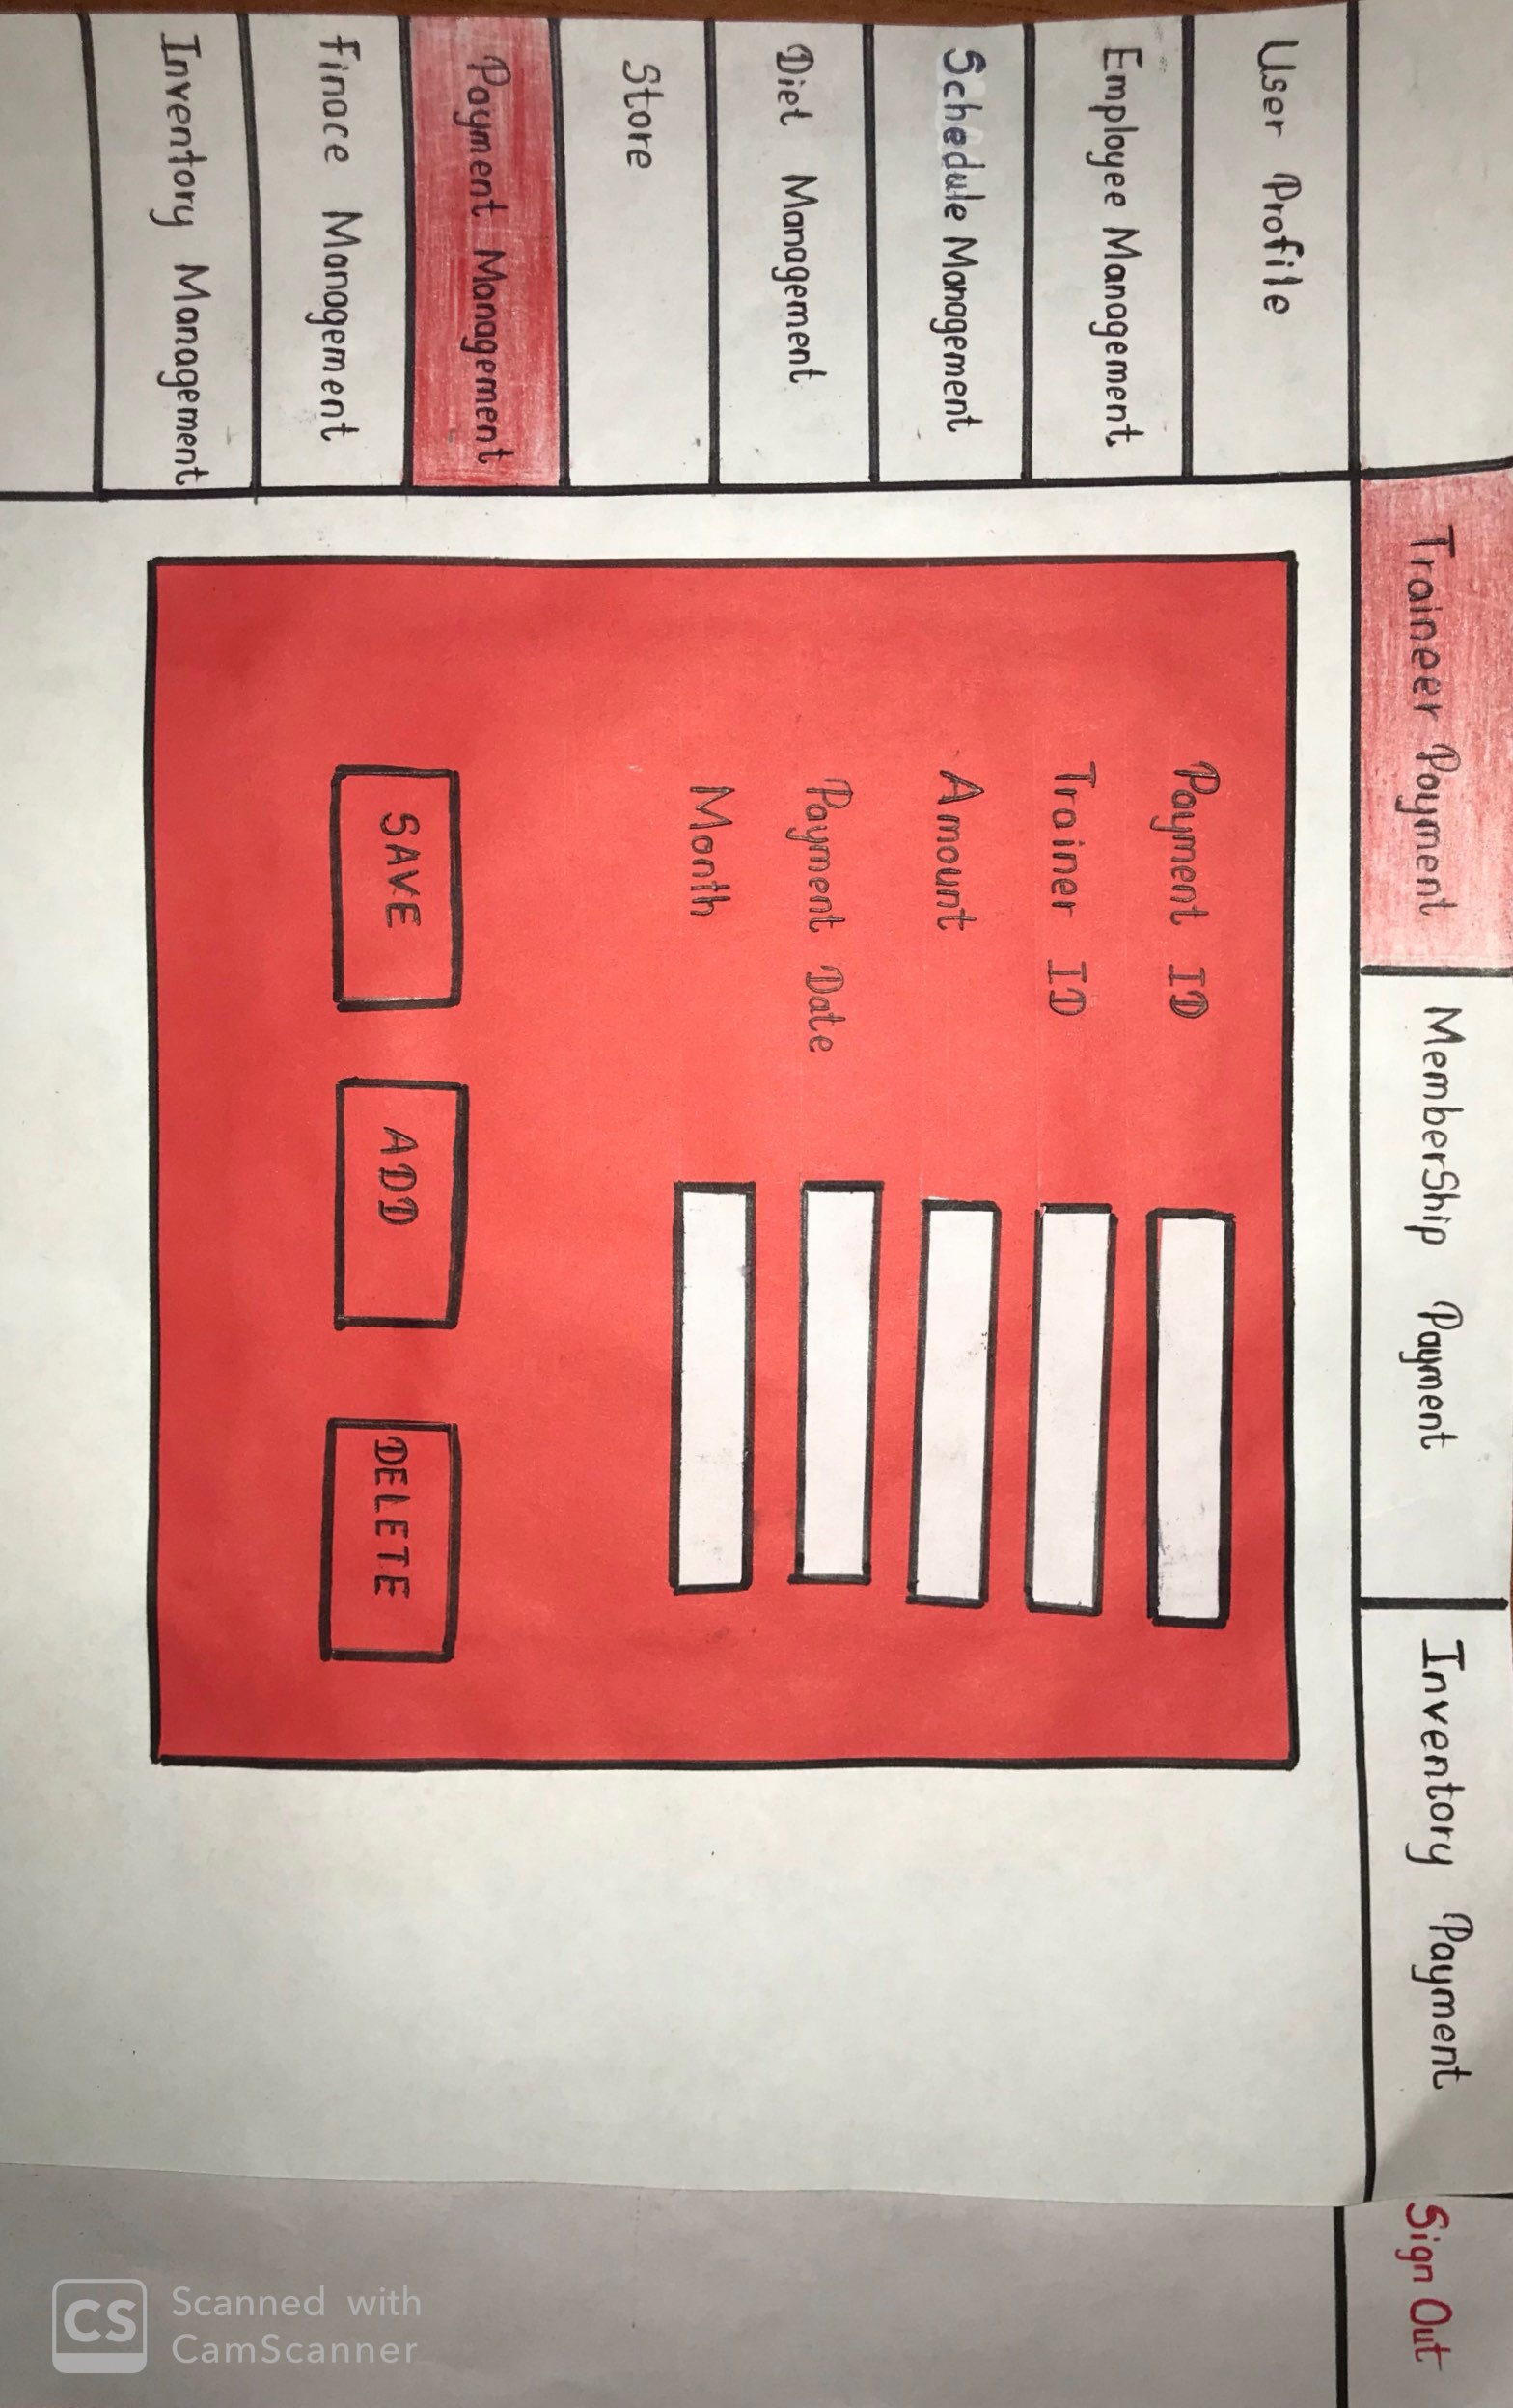 Traineer Payment
MemberShip Payment
Inventory Payment
Sign Out
User Profile
Employee Management
Schedule Management
Diet Management
Store
Payment Management
Finace Management
Inventory Management
Payment ID
Trainer ID
Amount
Payment Date
Month
SAVE
ADD
DELETE
CS
Scanned with
CamScanner